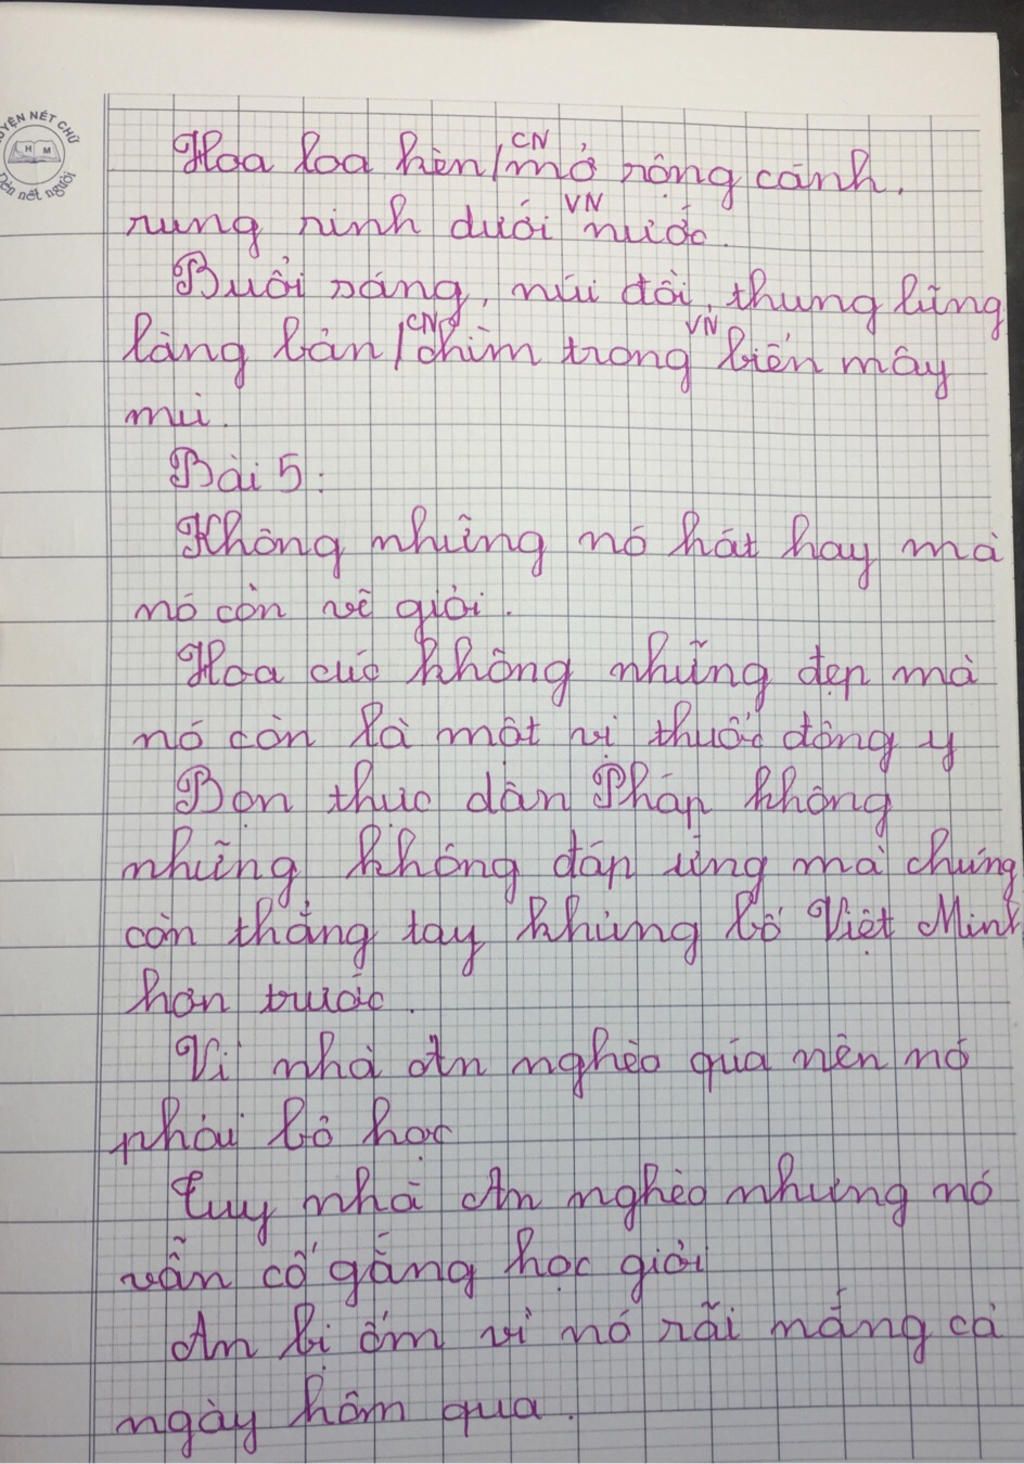 LUYỆN NÉT CHỮ
H M
Rèn nết người
Hoa loa kèn / mở rộng cánh,
CN
rung rinh dưới nước.
VN
Buổi sáng, núi đồi, thung lũng
làng bản / chìm trong biển mây
CN VN
mù.
Bài 5:
Không những nó hát hay mà
nó còn vẽ giỏi.
Hoa cúc không những đẹp mà
nó còn là một vị thuốc đông y
Bọn thực dân Pháp không
những không đáp ứng mà chúng
còn thẳng tay khủng bố Việt Minh
hơn trước.
Vì nhà An nghèo quá nên nó
phải bỏ học
Tuy nhà An nghèo nhưng nó
vẫn cố gắng học giỏi
An bị ốm vì nó rãi nắng cả
ngày hôm qua.